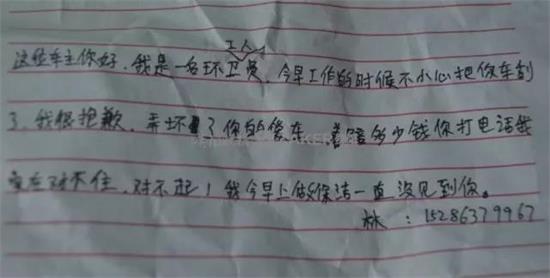 工人
这位车主你好,我是一名环卫员,今早工作的时候不小心把你车刮
了,我很抱歉,弄坏了你的爱车,着赔多少钱你打电话我
实在对不住,对不起!我今早上做保洁一直没见到你。
林:15286379967